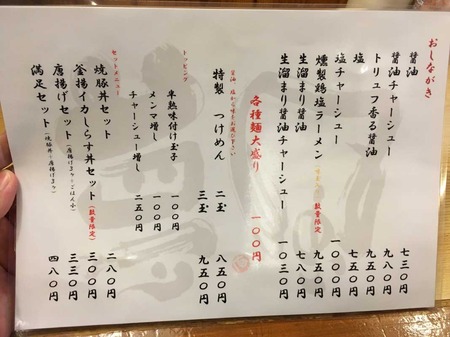 おしながき
醤油 七三〇円
醤油チャーシュー 九八〇円
トリュフ香る醤油 九五〇円
塩 七五〇円
塩チャーシュー 一〇〇〇円
燻製鶏塩ラーメン 数量限定 九五〇円
生溜まり醤油 七八〇円
生溜まり醤油チャーシュー 一〇三〇円
各種麺大盛り 一〇〇円
醤油 塩からお選び下さい
特製 つけめん 二玉 八五〇円
三玉 九五〇円
トッピング
半熟味付け玉子 一〇〇円
メンマ増し 一〇〇円
チャーシュー増し 二五〇円
セットメニュー
焼豚丼セット 二八〇円
釜揚イカしらす丼セット(数量限定) 三〇〇円
唐揚げセット(唐揚げ3ケ+ごはん小) 三三〇円
満足セット(焼豚丼+唐揚げ3ケ) 四八〇円